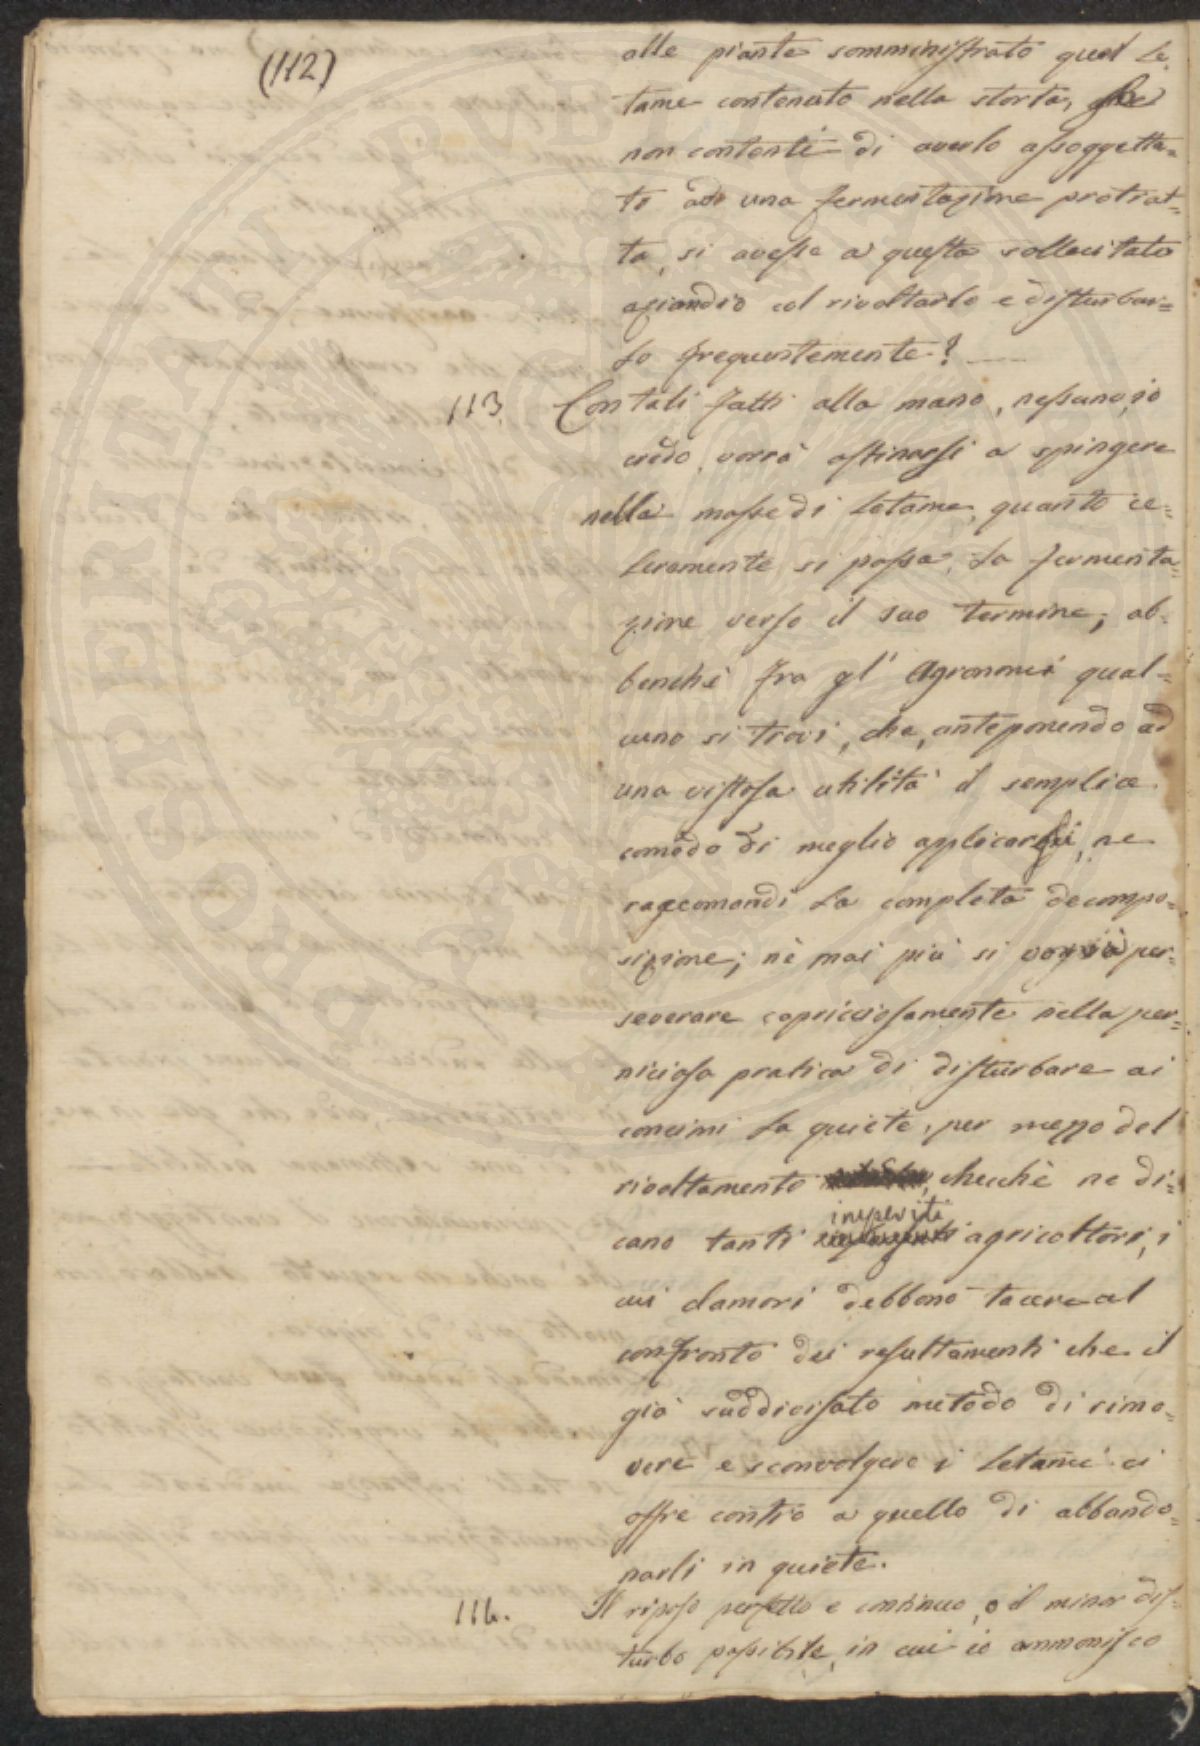 (112)
alle piante somministrato quel le=
tame contenuto nella storta, se
non contenti di averlo assoggetta=
to ad una fermentazione protrat=
ta, si avesse a questa sollecitato
aziandio col rivoltarlo e disturbar=
lo frequentemente?
113. Con tali fatti alla mano, nessuno, io
credo, vorrà ostinarsi a spingere
nelle masse di letame, quanto ce=
leramente si possa, la fermenta=
zione verso il suo termine; ab=
benchè fra gl' Agronomi qual=
cuno si trovi, che, anteponendo ad
una vistosa utilità il semplice
comodo di meglio applicarsi, ne
raccomandi la completa decompo=
sizione; nè mai più si vorrà per=
severare capricciosamente nella per=
niciosa pratica di disturbare ai
concimi la quiete, per mezzo del
rivoltamento, checchè ne di=
cano tanti imperiti agricoltori, i
cui clamori debbono tacere al
confronto dei resultamenti che il
già suddivisato metodo di rimo=
vere e sconvolgere i letami ci
offre contro a quello di abbando=
narli in quiete.
114. Il riposo perfetto e continuo, o il minor dis=
turbo possibile, in cui io ammonisco